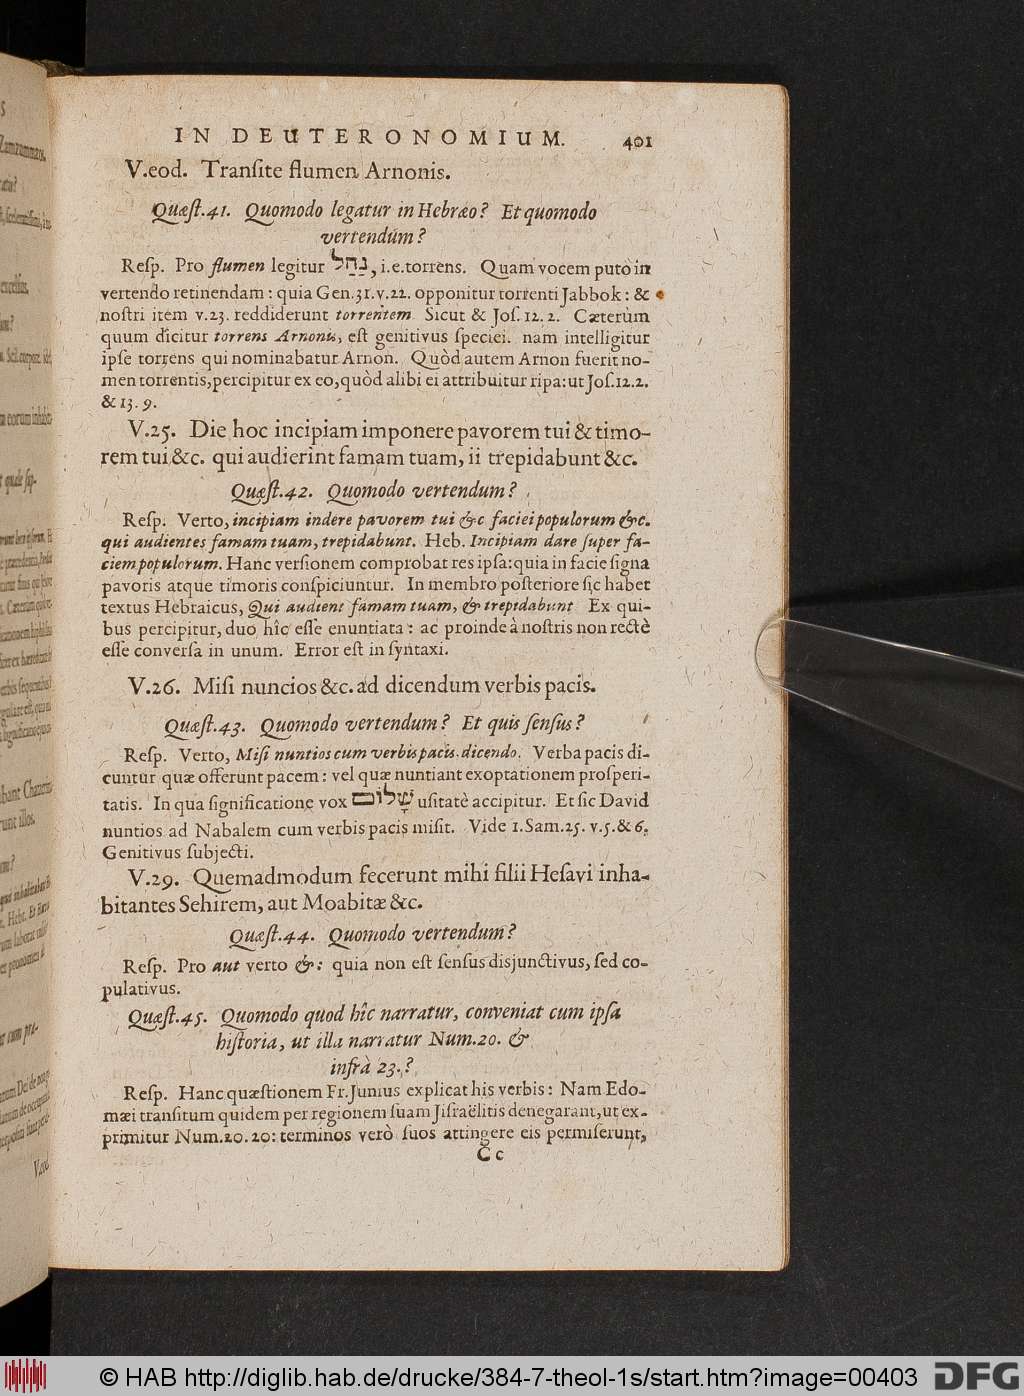 IN DEUTERONOMIUM. 401
V.eod. Tranſite flumen Arnonis.
Quæſt.41. Quomodo legatur in Hebræo? Et quomodo
vertendum?
Reſp. Pro flumen legitur נַחַל, i.e.torrens. Quam vocem puto in
vertendo retinendam: quia Gen.31.v.22. opponitur torrenti Jabbok: &
noſtri item v.23. reddiderunt torrentem. Sicut & Joſ.12.2. Cæterùm
quum dicitur torrens Arnonis, eſt genitivus ſpeciei. nam intelligitur
ipſe torrens qui nominabatur Arnon. Quòd autem Arnon fuerit no-
men torrentis, percipitur ex eo, quòd alibi ei attribuitur ripa: ut Joſ.12.2.
& 13.9.
V.25. Die hoc incipiam imponere pavorem tui & timo-
rem tui &c. qui audierint famam tuam, ii trepidabunt &c.
Quæſt.42. Quomodo vertendum?
Reſp. Verto, incipiam indere pavorem tui &c faciei populorum &c.
qui audientes famam tuam, trepidabunt. Heb. Incipiam dare ſuper fa-
ciem populorum. Hanc verſionem comprobat res ipſa: quia in facie ſigna
pavoris atque timoris conſpiciuntur. In membro poſteriore ſic habet
textus Hebraicus, Qui audient famam tuam, & trepidabunt Ex qui-
bus percipitur, duo hîc eſſe enuntiata: ac proinde à noſtris non rectè
eſſe converſa in unum. Error eſt in ſyntaxi.
V.26. Miſi nuncios &c. ad dicendum verbis pacis.
Quæſt.43. Quomodo vertendum? Et quis ſenſus?
Reſp. Verto, Miſi nuntios cum verbis pacis dicendo. Verba pacis di-
cuntur quæ offerunt pacem: vel quæ nuntiant exoptationem proſperi-
tatis. In qua ſignificatione vox שָׁלוֹם uſitatè accipitur. Et ſic David
nuntios ad Nabalem cum verbis pacis miſit. Vide 1.Sam.25. v.5.& 6.
Genitivus ſubjecti.
V.29. Quemadmodum fecerunt mihi filii Heſavi inha-
bitantes Sehirem, aut Moabitæ &c.
Quæſt.44. Quomodo vertendum?
Reſp. Pro aut verto &: quia non eſt ſenſus disjunctivus, ſed co-
pulativus.
Quæſt.45. Quomodo quod hîc narratur, conveniat cum ipſa
hiſtoria, ut illa narratur Num.20. &
infrà 23.?
Reſp. Hanc quæſtionem Fr. Junius explicat his verbis: Nam Edo-
mæi tranſitum quidem per regionem ſuam Jiſraëlitis denegarant, ut ex-
primitur Num.20.20: terminos verò ſuos attingere eis permiſerunt,
Cc
© HAB http://diglib.hab.de/drucke/384-7-theol-1s/start.htm?image=00403 DFG